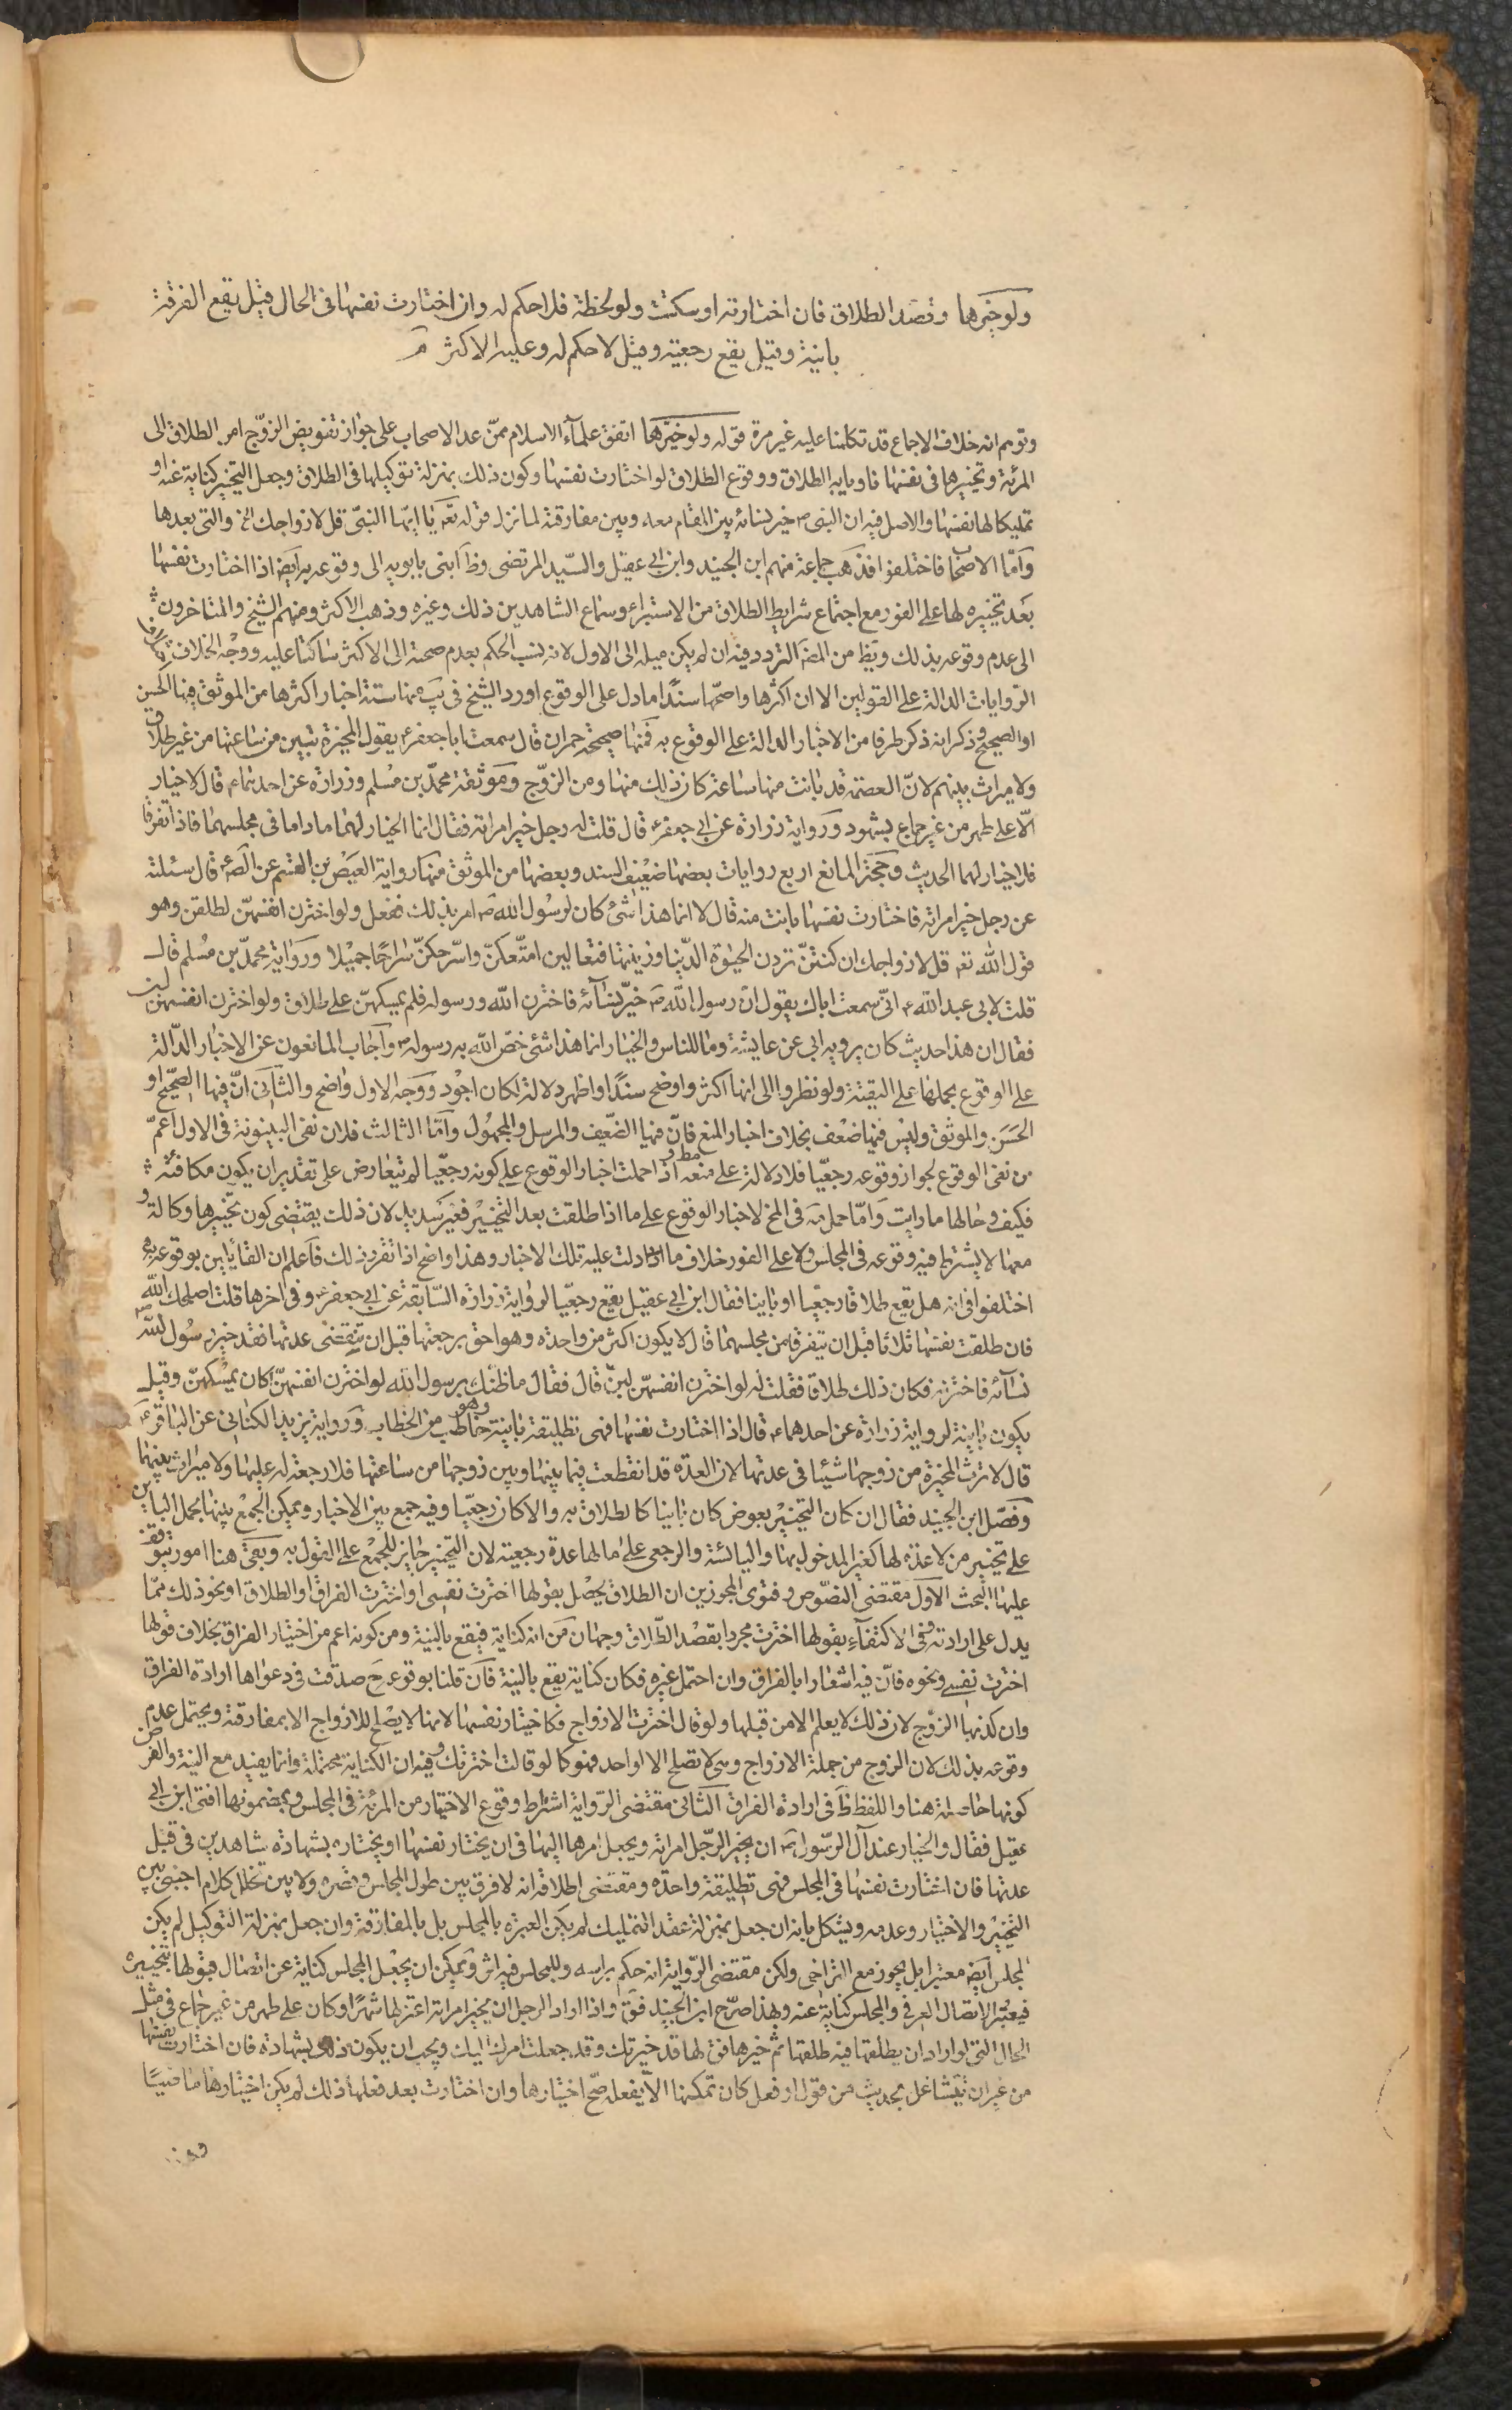 ولو خيرها وقصد الطلاق فان اختارته او سكتت ولو لحظة فلا حكم له وان اختارت نفسها في الحال قيل يقع الفرقة
باينة وقيل يقع رجعية وقيل لا حكم له وعليه الاكثر
وتوهم انه خلاف الاجماع قد تكلمنا عليه غير مرة قوله ولو خيّرها اتفق علمآء الاسلام ممّن عدا الاصحاب على جواز تفويض الزوّج امر الطلاق الى
المرئة وتخييرها في نفسها ناويا به الطلاق ووقوع الطلاق لو اختارت نفسها وكون ذلك بمنزلة توكيلها في الطلاق وجعل التخيير كناية عنه او
تمليكا لها نفسها والاصل فيه ان النبى ص خير نسائه بين المقام معه وبين مفارقته لما نزل قوله تعٓ يا ايّها النبىّ قل لازواجك الخ والتى بعدها
وآمّا الاصحاب فاختلفوا فذهب جماعة منهم ابن الجنيد وابن ابى عقيل والسيّد المرتضى وظٓ ابنى بابويه الى وقوعه به ايضٓ اذا اختارت نفسها
بعد تخييره لها على الفور مع اجتماع شرايط الطلاق من الاستبراء وسماع الشاهدين ذلك وغيره وذهب الاكثر ومنهم الشيخ والمتاخرون
الى عدم وقوعه بذلك ويظ من المصٓ التردد فيه ان لم يكن ميله الى الاول لانه نسب الحكم بعدم صحته الى الاكثر ساكتا عليه ووجه الخلاف
الرّوايات الدالة على القولين الا ان اكثرها واصحّها سندًا ما دل على الوقوع اورد الشيخ في يب منها ستة اخبار اكثرها من الموثق فيها الحسن
او الصحيح وذكر انه ذكر طرفا من الاخبار الدالة على الوقوع به فمنها صحيحة حمران قال سمعت ابا جعفر ع يقول المخيرة تبين من ساعتها من غير طلاق
ولا ميراث بينهم لانّ العصمة قد بانت منها ساعة كان ذلك منها ومن الزوّج وموثقة محمّد بن مسلم وزرارة عن احدهما ع قال لا خيار
الّا على طهر من غير جماع بشهود ورواية زرارة عن ابى جعفر ع قال قلت له رجل خير امراته فقال انما الخيار لهما ما داما في مجلسهما فاذا تفرقا
فلا خيار لهما الحديث وحجة المانع اربع روايات بعضها ضعيف السند وبعضها من الموثق منها رواية العيص بن القسم عن الصٓ ع قال سئلته
عن رجل خير امراته فاختارت نفسها بانت منه قال لا انما هذا شئ كان لرسول الله صٓ امر بذلك ففعل ولو اخترن انفسهنّ لطلقن وهو
قول الله تعٓ قل لازواجك ان كنتنّ تردن الحيوة الدّنيا وزينتها فتعالين امتّعكنّ واسرّحكنّ سراحًا جميلا ورواية محمّد بن مسلم قال
قلت لابى عبد الله ع انّى سمعت اباك يقول انّ رسول الله صٓ خيّر نسآئه فاخترن الله ورسوله فلم يمسكهنّ على طلاق ولو اخترن انفسهنّ لبن
فقال ان هذا حديث كان يرويه ابى عن عايشة وما للناس والخيار انما هذا شئ خصّ الله به رسوله ص وآجاب المانعون عن الاخبار الدّالة
على الوقوع بحملها على التقية ولو نظروا الى انها اكثر واوضح سندًا واظهر دلالة لكان اجود ووجه الاول واضح والثآنى انّ فيها الصّحيح او
الحَسَن والموثق وليس فيها ضعف بخلاف اخبار المنع فانّ فيها الضّعيف والمرسل والمجهول وآمّا الثالث فلان نفى البينونة في الاول اعمّ
من نفى الوقوع لجواز وقوعه رجعيّا فلا دلالة على منعه مطٓ واذا حملت اخبار الوقوع على كونه رجعيّا لم تعارض على تقدير ان يكون مكافئة
فكيف وحالها ما رايت وآمّا حمل مٓه في المخ لاخبار الوقوع على ما اذا طلقت بعد التخيير فغير سديد لان ذلك يقتضى كون تخييرها وكالة و
معها لا يشترط فيه وقوعه في المجلس ولا على الفور خلاف ما دلت عليه تلك الاخبار وهذا واضح اذا تقرر ذلك فآعلم ان القايلين بوقوعه به
اختلفوا في انه هل يقع طلاقا رجعيّا او باينا فقال ابن ابى عقيل يقع رجعيّا لرواية زرارة السّابقة عن ابى جعفر ع وفي اخرها قلت اصلحك الله
فان طلقت نفسها ثلاثا قبل ان يتفرقا من مجلسهما قال لا يكون اكثر من واحدة وهو احق برجعتها قبل ان تنقضى عدتها فقد خير رسول الله ص
نسآئه فاخترنه فكان ذلك طلاقا فقلت له لو اخترن انفسهنّ لبنّ قال فقال ما ظنك برسول الله لو اخترن انفسهنّ اكان يمسكهنّ وقيل
يكون باينة لرواية زرارة عن احدهما ع قال اذا اختارت نفسها فهى تطليقة باينة وهو خاطب من الخطاب ورواية يزيد الكناسى عن الباقر ع
قال لا ترث المخيرة من زوجها شيئا في عدتها لان العدة قد انقطعت فيما بينها وبين زوجها من ساعتها فلا رجعة له عليها ولا ميراث بينهما
وفصّل ابن الجنيد فقال ان كان التخيير بعوض كان باينا كالطلاق به والا كان رجعيّا وفيه جمع بين الاخبار ويمكن الجمع بينها بحمل الباين
على تخيير من لا عدة لها كغير المدخول بها واليائسة والرجعى على ما لها عدة رجعية لان التخيير جايز للجمع على القول به وبقى هنا امور يتوقف
عليها البحث الاول مقتضى النصّوص وفتوى المجوزين ان الطلاق يحصل بقولها اخترت نفسى او اخترت الفراق او الطلاق او نحو ذلك ممّا
يدل على ارادته وفى الاكتفآء بقولها اخترت مجردا بقصد الطّلاق وجهان من انه كناية فيقع بالنية ومن كونه اعم من اختيار الفراق بخلاف قولها
اخترت نفسى ونحوه فانّ فيه اشعارا بالفراق وان احتمل غيره فكان كناية يقع بالنية فآن قلنا بوقوعه حٓ صدقت في دعواها ارادة الفراق
وان كذبها الزوّج لان ذلك لا يعلم الا من قبلها ولو قال اخترت الازواج فكاختيار نفسها لانها لا يصلح للازواج الا بمفارقته ويحتمل عدم
وقوعه بذلك لان الزوج من جملة الازواج وهى لا تصلح الا لواحد فهو كما لو قالت اخترتك وفيه ان الكناية محتملة وانما يفيد مع النية والفرض
كونها حاصلة هنا واللفظ ظٓ في ارادة الفراق الثآنى مقتضى الرّواية اشتراط وقوع الاختيار من المرئة في المجلس وبمضمونها افتى ابن ابى
عقيل فقال والخيار عند آل الرّسول عٓ ان يخير الرّجل امراته ويجعل امرها اليها في ان يختار نفسها او يختاره بشهادة شاهدين في قبل
عدتها فان اختارت نفسها في المجلس فهى تطليقة واحدة ومقتضى اطلاقه انه لا فرق بين طول المجلس وقصره ولا بين تخلل كلام اجنبى بين
التخيير والاختيار وعدمه ويشكل بانه ان جعل بمنزلة عقد التمليك لم يكن العبرة بالمجلس بل بالمفارقة وان جعل بمنزلة التوكيل لم يكن
المجلس ايضٓ معتبرا بل يجوز مع التراخى ولكن مقتضى الرّواية انه حكم براسه وللمجلس فيه اثر ويمكن ان يجعل المجلس كناية عن اتصال قبولها بتخييره
فيعتبر الاتصال العرفى والمجلس كناية عنه وبهذا صرّح ابن الجنيد فقٓ واذا اراد الرجل ان يخير امراته اعتزلها شهرًا وكان على طهر من غير جماع في مثل
الحال التى لو اراد ان يطلقها فيه طلقها ثم خيرها فقٓ لها قد خيرتك وقد جعلت امرك اليك ويجب ان يكون ذلك بشهادة فان اختارت نفسها
من غير ان تتشاغل بحديث من قول او فعل كان تمكنها الّا يفعله صحّ اختيارها وان اختارت بعد فعلها ذلك لم يكن اختيارها ماضيًا